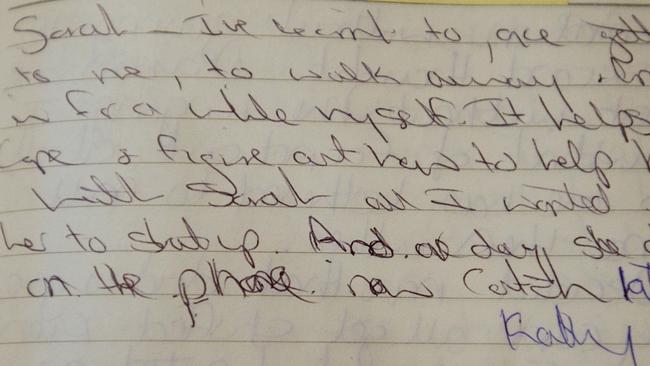 Sarah - I've learnt to, once
to me, to walk away.
for a while myself. It helps
& figure out how to help
with Sarah all I wanted
her to shut up. And. all day she
on the phone. now Catch
Kathy